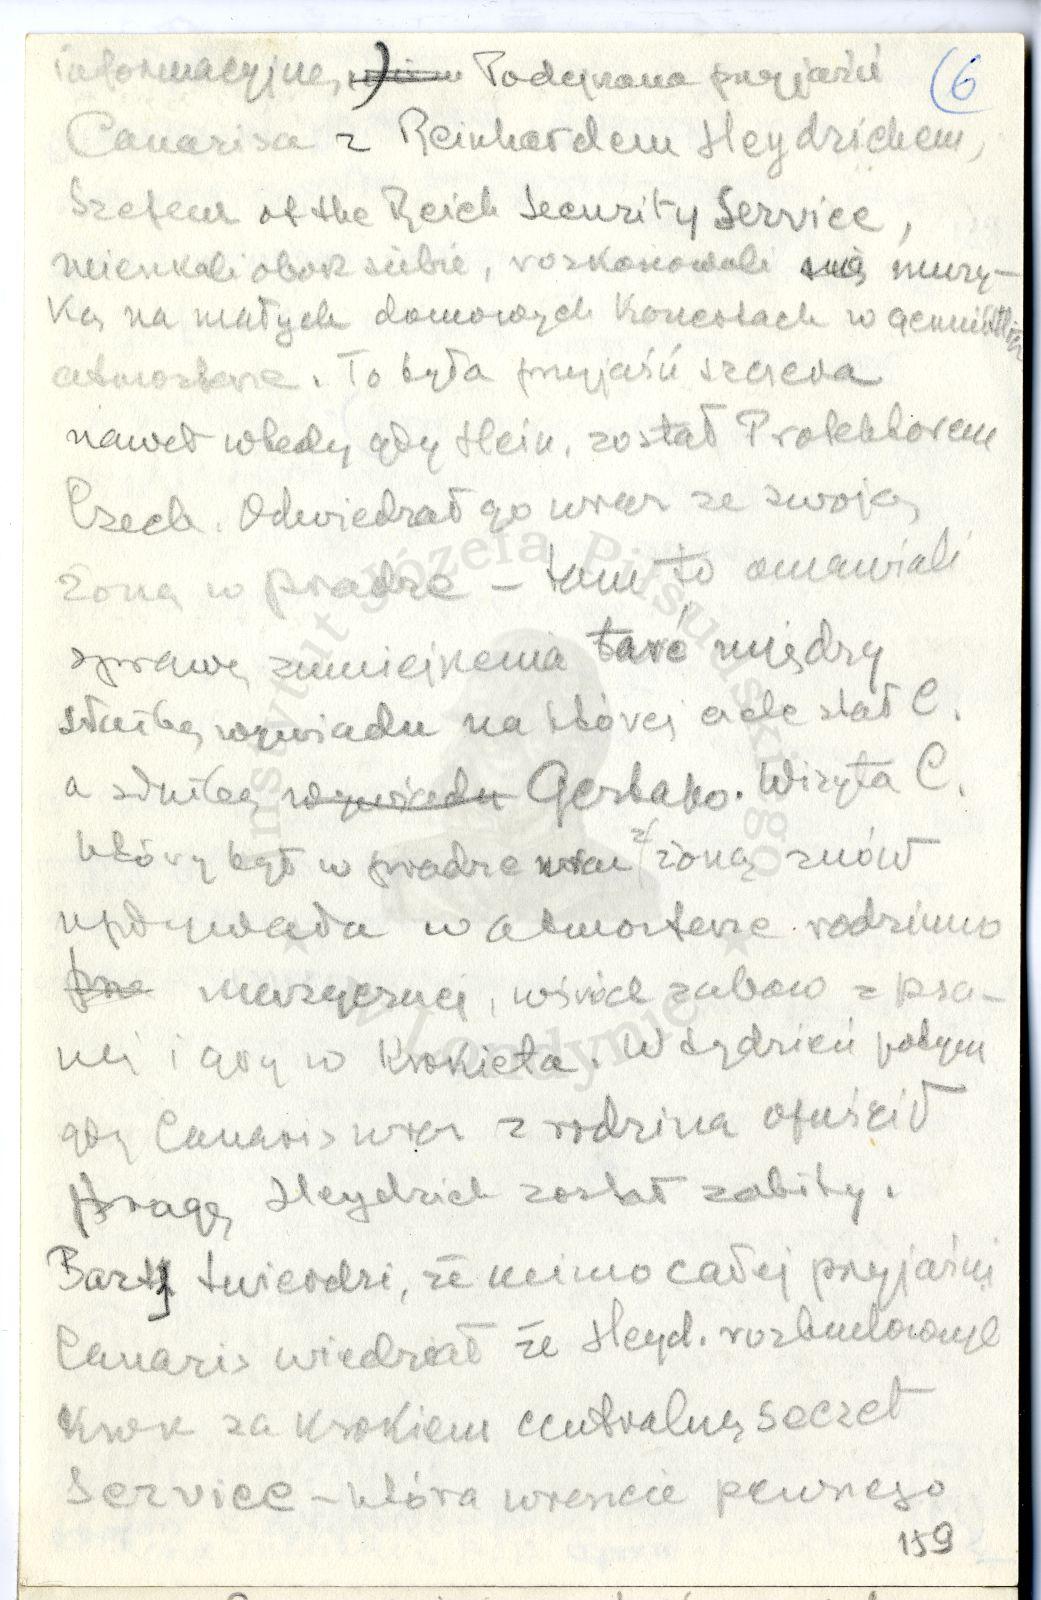 informacyjne,) Podejrzana przyjaźń (6
Canarisa z Reinhardem Heydrichem,
Szefem of the Reich Security Service,
mieszkali obok siebie, rozkoszowali się muzy-
ką na małych domowych koncertach w
atmosferze. To była przyjaźń szczera
nawet wtedy gdy Hein. został Protektorem
Czech. Odwiedzał go wraz ze swoją
żoną w pradze – tam to omawiali
sprawę zmniejszenia tarć między
służbą wywiadu na której czele stał C.
a służbą wywiadu Gestapo. Wizyta C.
który był w pradze wraz z żoną znów
upływała w atmosferze rodzinno
muzycznej, wśród zabaw z psa-
mi i gry w Krokieta. W tydzień potym
gdy Canaris wraz z rodziną opuścił
pragę Heydrich został zabity.
Bartz twierdzi, że mimo całej przyjaźni
Canaris wiedział że Heyd. rozbudowywał
krok za krokiem centralną secret
Service – która wreszcie pewnego
159
Instytut Józefa Piłsudskiego
w Londynie